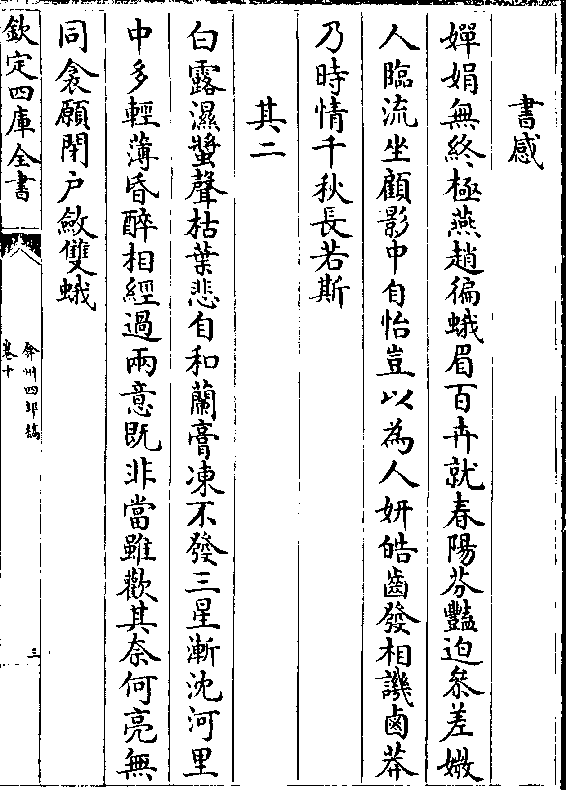 書感
嬋娟無終極燕趙徧蛾眉百卉就春陽芬豔迫叅差媺
人臨流坐顧影中自怡豈以為人妍皓齒發相譏鹵莽
乃時情千秋長若斯
其二
白露濕螿聲枯葉悲自和蘭膏凍不發三星漸沈河里
中多輕薄昏醉相經過兩意既非當雖歡其奈何亮無
同衾願閉户斂雙蛾
欽定四庫全書
弇州四部稿
卷十
三